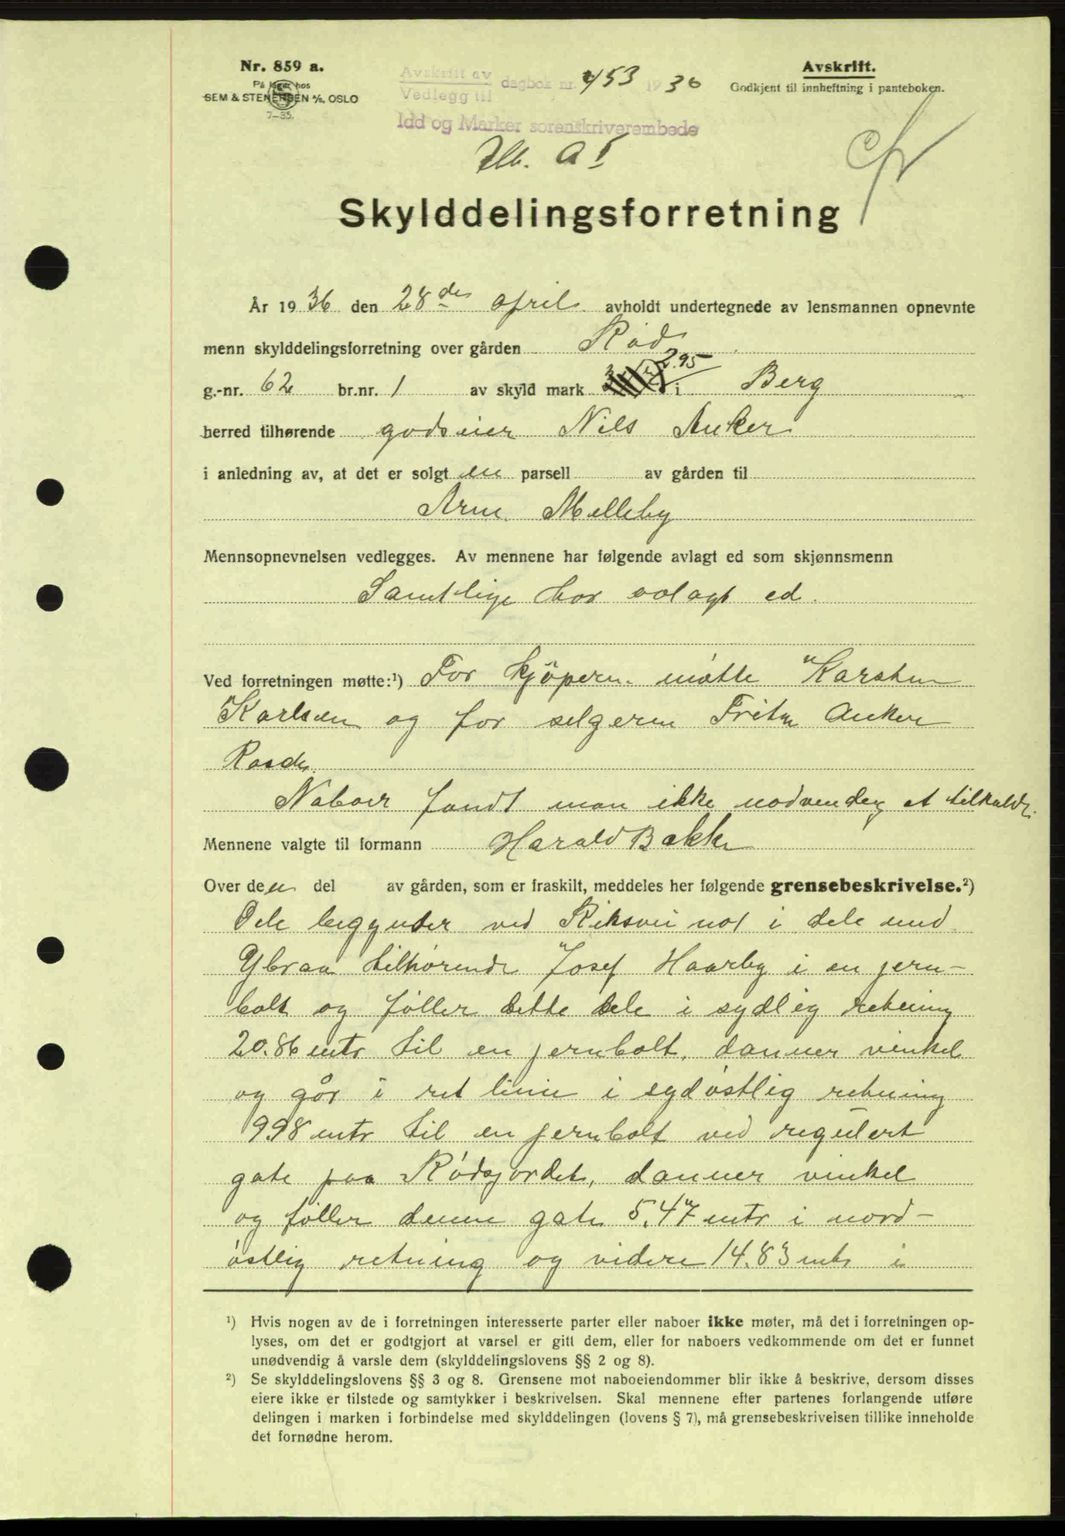 Nr. 859 a.
På lager hos
SEM & STENERSEN A/S, OSLO
7-35.
Avskrift av
Vedlegg til
dagbok nr. 453 1936
Idd og Marker sorenskriverembede
Avskrift.
Godkjent til innheftning i panteboken.
Skylddelingsforretning
År 1936 den 28de april avholdt undertegnede av lensmannen opnevnte
menn skylddelingsforretning over gården Rød
g.-nr. 62 br.nr. 1 av skyld mark 2.95 i Berg
herred tilhørende godseier Nils Anker
i anledning av, at det er solgt en parsell av gården til
Arne Melleby
Mennsopnevnelsen vedlegges. Av mennene har følgende avlagt ed som skjønnsmenn
Samtlige har avlagt ed.
Ved forretningen møtte:¹) For kjöperen møtte Karsten
Karlsen og for selgeren Anker
Naboer fandt man ikke nødvendig at tilkalde.
Mennene valgte til formann Harald Bakke
Over den del av gården, som er fraskilt, meddeles her følgende grensebeskrivelse.²)
Dele begynder ved Riksvei no 1 i dele med
tilhørende Josef Haarby i en jern-
bolt og føller dette dele i sydlig retning
20.86 mtr til en jernbolt, danner vinkel
og går i ret linie i sydøstlig retning
9.98 mtr til en jernbolt ved regulert
gate paa Rødsjordet, danner vinkel
og føller denne gate 5.47 mtr i nord-
østlig retning og videre 14.83 mtr i
¹) Hvis nogen av de i forretningen interesserte parter eller naboer ikke møter, må det i forretningen op-
lyses, om det er godtgjort at varsel er gitt dem, eller for naboers vedkommende om det er funnet
unødvendig å varsle dem (skylddelingslovens §§ 2 og 8).
²) Se skylddelingslovens §§ 3 og 8. Grensene mot naboeiendommer blir ikke å beskrive, dersom disses
eiere ikke er tilstede og samtykker i beskrivelsen. Skal mennene efter partenes forlangende utføre
delingen i marken i forbindelse med skylddelingen (lovens § 7), må grensebeskrivelsen tillike inneholde
det fornødne herom.